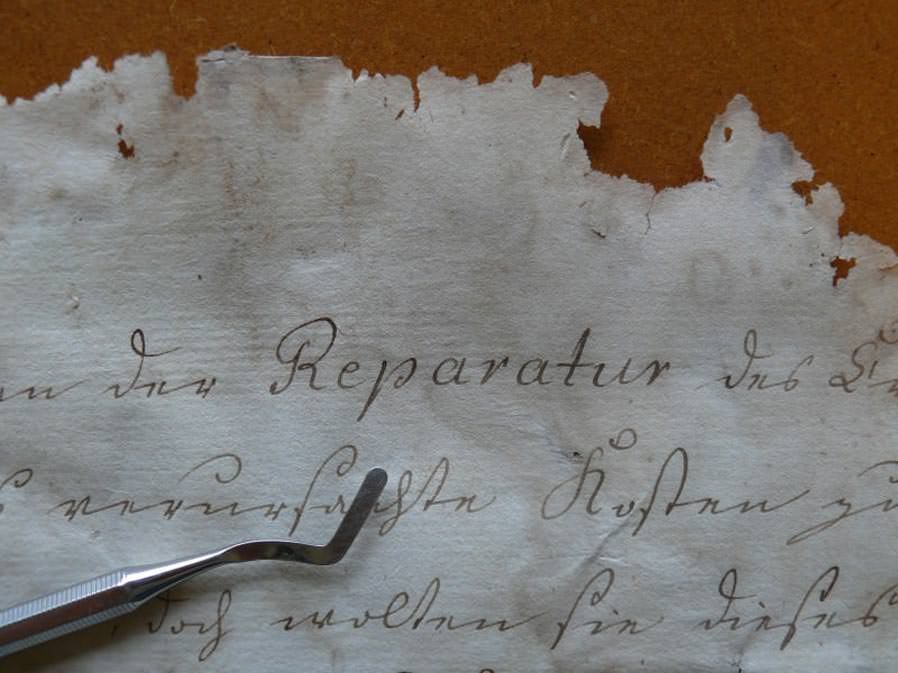 der Reparatur des
verursachte Kosten zu
doch wolten sie dieses